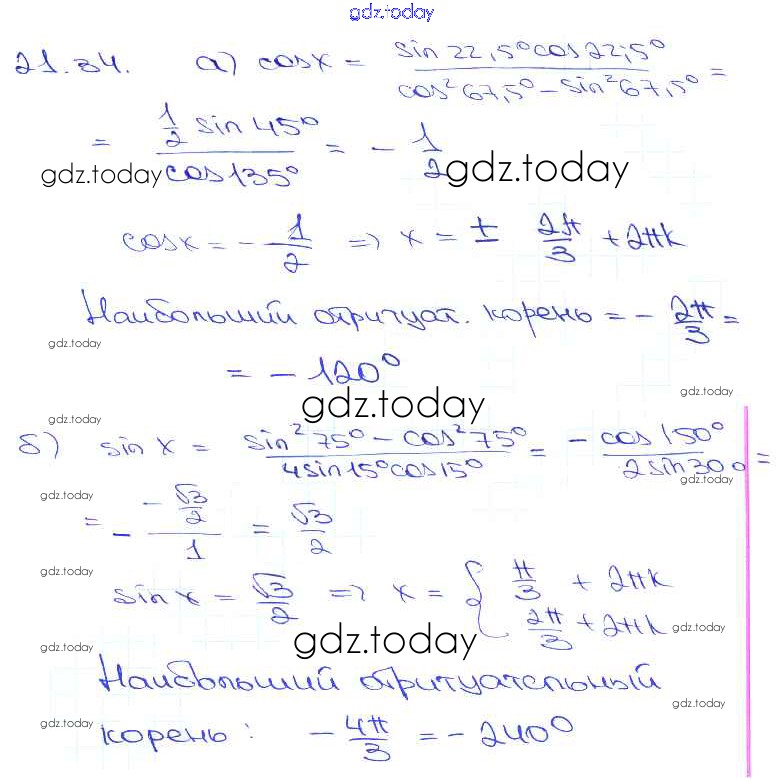 gdz.today
21.34. а) cosx = sin22,5°cos22,5° / cos²67,5° − sin²67,5° =
= 1/2 sin45° / cos135° = − 1/2
gdz.today gdz.today
cosx = − 1/2 => x = ± 2π/3 + 2πk
Наибольший отритуат. корень = − 2π/3 =
gdz.today
= − 120°
gdz.today
gdz.today
gdz.today
б) sin x = sin²75° − cos²75° / 4sin15°cos15° = − cos150° / 2sin30° =
gdz.today
gdz.today
= − −√3/2 / 1 = √3/2
gdz.today
sin x = √3/2 => x = { π/3 + 2πk
2π/3 + 2πk
gdz.today
gdz.today
gdz.today
Наибольший отритуательный
gdz.today
gdz.today
корень: − 4π/3 = − 240°